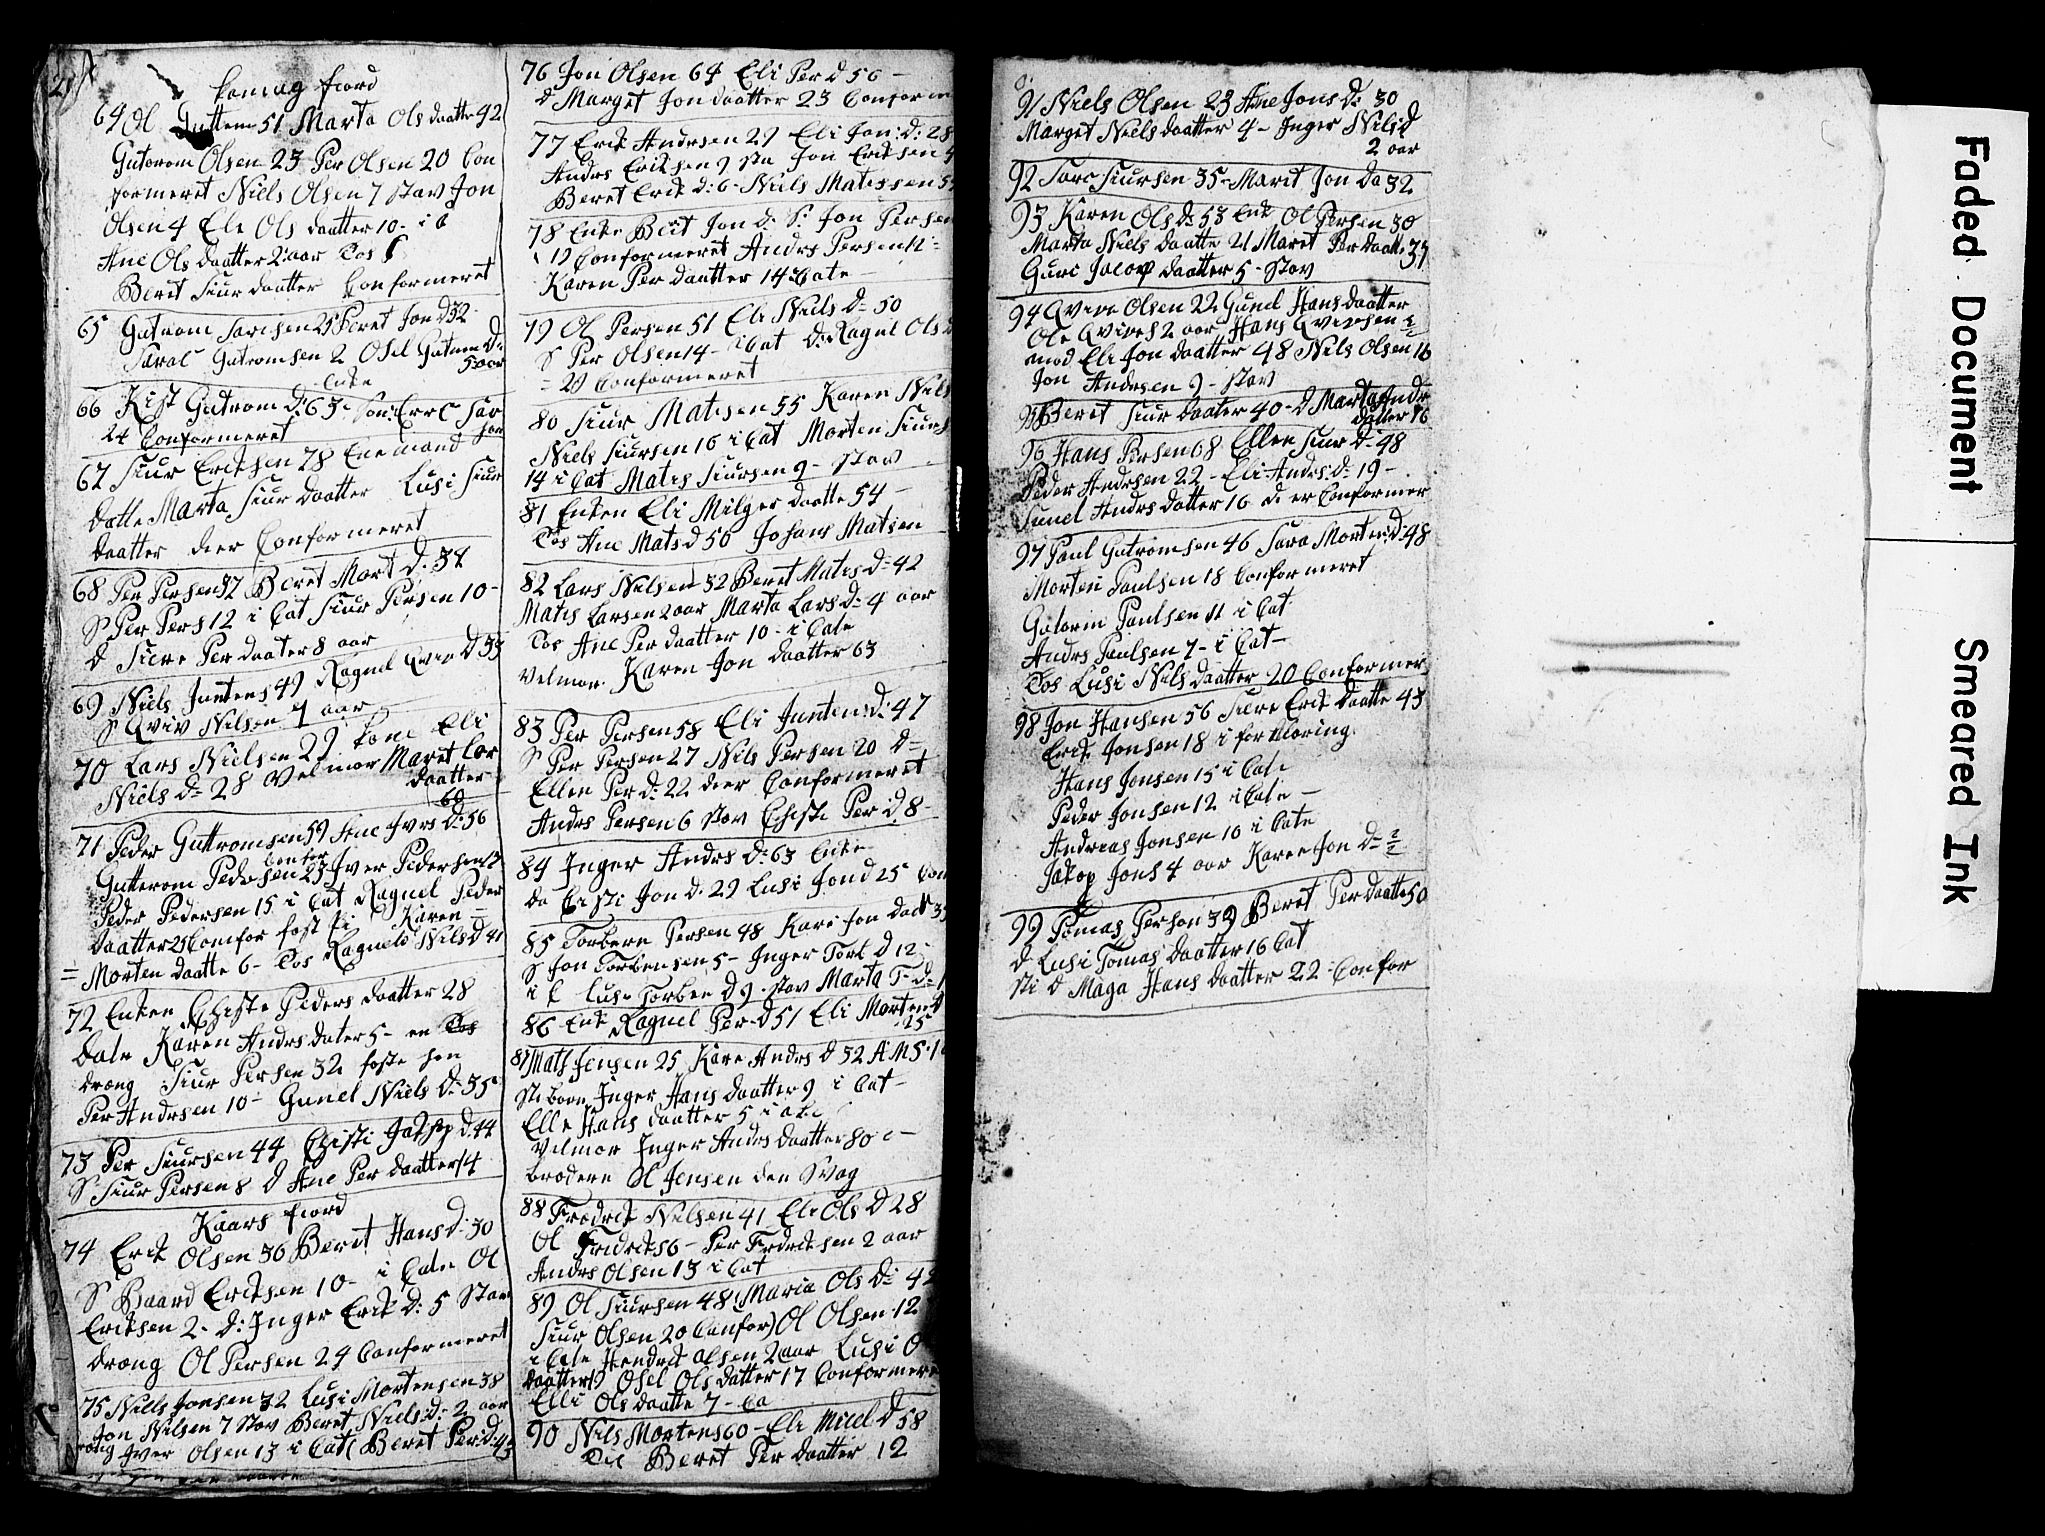 64 Ol Guttem 51 Marta Ols daatter 42
Gutorom Olsen 23 Per Olsen 20 Con
formeret Niels Olsen 7 stav Jon
Olsen 4 Ele Ols daatter 10 - i C
Ane Ols daatter 2 aar Tos
Berit Siur daatter Conformeret
65 Gutrom Sarisen 25 Beret Jon D 32
Saral Gutromsen 2 Osel Gutrom D:
5 aar
Enke
66 Kist Gutrom D: 63 - son: Erec Sar
24 Conformeret
67 Siur Ericksen 78 Enemand har
datte Marta Siur daatter Lusi Siur
daatter dier Conformeret
68 Per Persen 37 Beret Mort D: 37
S Per Pers 12 i Cat Siur Persen 10 -
d Siere Per daater 8 aar
69 Niels Juntens 49 Ragnel Qvivo D 33
S Qviv Nilsen 7 aar
70 Lars Nielsen 29 kone Eli
Niels D: 28 Velmor Maret Lar
daatter
60
71 Peder Guttromsen 59 Ane Ivrs D: 56
Gutterom Pedersen 23 Iver Pedersen
Peder Pedersen 15 i Cat Ragnel Peder
daatter 25 Comfor fost Pi Karen =
= Morten daatte 6 - Tos Ragnele Nils D 41
72 Enken Christe Peders daatter 28
date Karen Andrs dater 5 - en Tos
drang Siur Persen 32 foste sen
Per Andrsen 10 - Gunel Niels D: 35
73 Per Siursen 44 Christi Jakop D: 44
S Siur Persen 8 D Ane Per daatter 14
Kaars fiord
74 Erik Olsen 36 Berit Hans D: 30
S Baard Eriksen 10 - i Cate Ol
Eriksen 2 - D: Inger Erik D: 5 Stav
drang Ol Persen 24 Conformeret
75 Niels Jonsen 32 Lusi Mortensen 38
Jon Nilsen 7 Stav Beret Niels D: 2 aar
Iver Olsen 13 i Cat Beret Per: D: 43
76 Jon Olsen 64 Eli Per d 56 -
d Marget Jon daatter 23 Conform
77 Erik Andrsen 29 Eli Jon: D: 28
Andrs Eriksen 9 sta Jon Eriksen
Beret Erik D: 6 - Niels Matissen
78 Enke Beit Jon D: S: Jon Persen
19 Conformeret Andrs Persen 12 =
Karen Per daatter 14 Cate -
79 Ol Persen 51 Eli Niels D: 50
S Per Olsen 14 - i Cat D: Ragnl Ols
= 20 Conformeret
80 Siur Matisen 55 Karen Nils
Niels Siursen 16 i Cat Morten Siurs
14 i Cat Matis Siursen 9 - Stav
81 Enken Eli Milger daatte 54 -
Tos Ane Mats d 50 Johans Matsen
82 Lars Nilsen 32 Beret Matis D: 42
Matis Larsen 2 aar Marta Lars D: 4 aar
Tos Ane Per daatter 10 - i Cate
Velmor Karen Jon daatter 63
83 Per Persen 58 Eli Junten: D: 47
S Per Persen 27 Nils Persen 20 D =
Ellen Per D: 22 dier Conformeret
Andrs Persen 6 Stav Christi Per: D 8 -
84 Inger Andrs D: 63 Enke
da Cristi Jon D: 29 Lusi Jon d 25 Con
85 Torbern Persen 48 Kari Jon datt
S Jon Torbensen 5 - Inger Tort D 12
i C Lusi Torben D 9 - stav Marta T - D:
86 Enk Ragnel Per D 51 Eli Morten D
25
87 Mats Jensen 25 Kare Andrs D 32 A M S
Sti børn Inger Hans daatter 9 i Cat -
Elle Hans daatter 5
Velmor Inger Andrs daatter 80 -
brodere Ol Jensen den Svag
88 Fredrik Nilsen 41 Eli Ols D 28
Ol Fridriks 6 - Per Fredriksen 2 aar
Andrs Olsen 13 i Cat
89 Ol Siursen 48 Maria Ols D: 42
Siur Olsen 20 Confor) Ol Olsen 12
i Cate Hendrik Olsen 2 aar Lusi O
daatter 19 Osel Ols datter 17 Conformere
Elli Ols daatte 7 - Ca
90 Nils Mortens 60 - Eli Micel D 58
Beret Per daatter 12
91 Niels Olsen 23 Ane Jons D: 30
Marget Niels daatter 4 - Inger Nils D
2 aar
92 Sarc Siursen 35 - Marit Jon Da 32
93 Karen Ols D: 53 Enk Ol Persen 30
Marta Niels daatte 21 Maret Per daatte 37
Guro Jacop daatter 5 - Stav
94 Qvive Olsen 22 Gunel Hans daatter
Ole Qvives 2 aar Hans Qvivsen ½
mod Eli Jon daatter 48 Nils Olsen 16
Jon Andrsen 9 - Stav
95 Beret Siur daater 40 - d Marta Andr
datter 16
96 Hans Persen 68 Ellen Siur D: 48
Peder Andrsen 22 - Eli Andrs: D: 19 -
Gunel Andrs datter 16 di er Conformer
97 Paul Gutromsen 46 Sara Morten: D: 48
Morten Paulsen 18 Conformeret
Gutorm Paulsen 11 i Cat
Andrs Paulsen 7 - i Cat -
Tos Lusi Nils daatter 20 Conformer
98 Jon Hansen 56 Siere Erik daatte 43
Erik Jonsen 18 i forkloring
Hans Jonsen 15 i Cate
Peder Jonsen 12 i Cate -
Andreas Jonsen 10 i Cate
Jakop Jons 4 aar Karen Jon D: ½
99 Tomas Person 39 Beret Per daatte 50
D Lusi Tomas daatter 16 Cat
sti D Maga Hans daatter 22 - Confor
Faded Document Smeared Ink